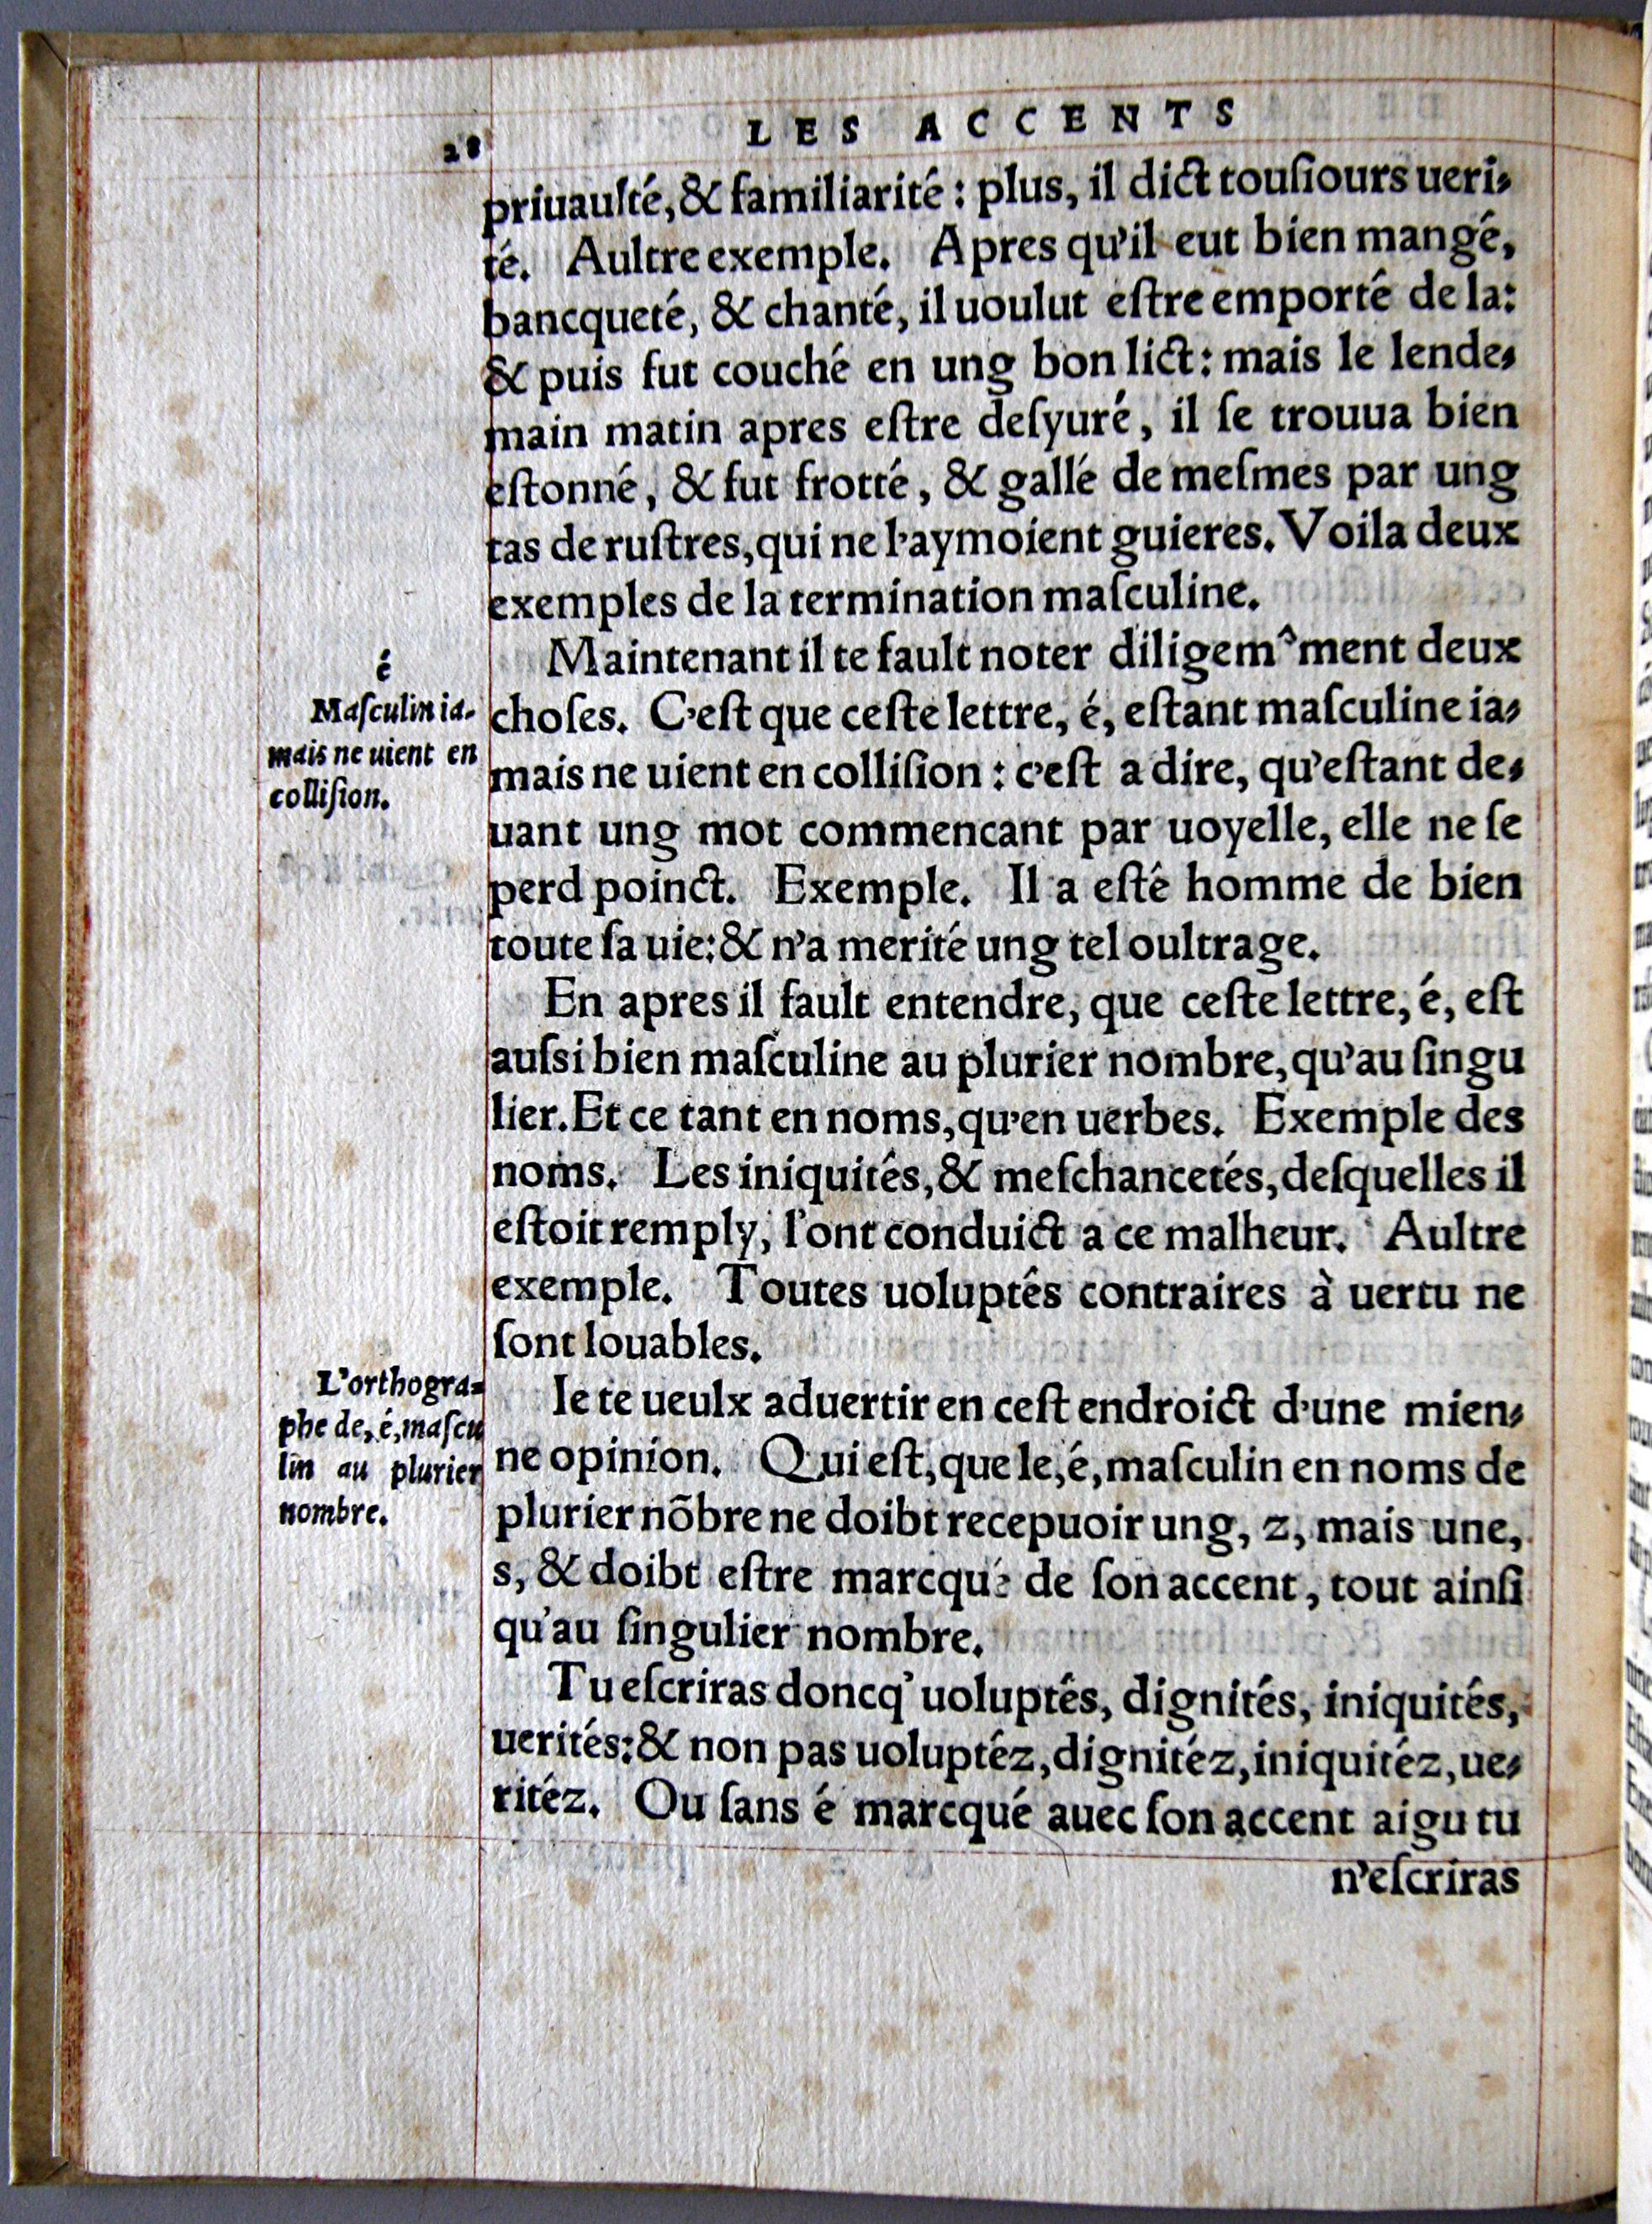 28
LES ACCENTS
priuaulté, & familiarité : plus, il dict touſiours ueri-
té. Aultre exemple. Apres qu'il eut bien mangé,
bancqueté, & chanté, il uoulut eſtre emporté de la:
& puis fut couché en ung bon lict : mais le lende-
main matin apres eſtre deſyuré, il ſe trouua bien
eſtonné, & fut frotté, & gallé de meſmes par ung
tas de ruſtres, qui ne l'aymoient guieres. Voila deux
exemples de la termination maſculine.
Maintenant il te fault noter diligem^ment deux
choſes. C'eſt que ceſte lettre, é, eſtant maſculine ia-
mais ne uient en colliſion : c'eſt a dire, qu'eſtant de-
uant ung mot commencant par uoyelle, elle ne ſe
perd poinct. Exemple. Il a eſtê homme de bien
toute ſa uie: & n'a merité ung tel oultrage.
é
Maſculin ia-
mais ne uient en
colliſion.
En apres il fault entendre, que ceſte lettre, é, eſt
auſsi bien maſculine au plurier nombre, qu'au ſingu
lier. Et ce tant en noms, qu'en uerbes. Exemple des
noms. Les iniquités, & meſchancetés, deſquelles il
eſtoit remply, l'ont conduict a ce malheur. Aultre
exemple. Toutes uoluptês contraires à uertu ne
ſont louables.
Ie te ueulx aduertir en ceſt endroict d'une mien-
ne opinion. Qui eſt, que le, é, maſculin en noms de
plurier nõbre ne doibt recepuoir ung, z, mais une,
s, & doibt eſtre marcqué de ſon accent, tout ainſi
qu'au ſingulier nombre.
L'orthogra-
phe de, é, maſcu
lin au plurier
nombre.
Tu eſcriras doncq' uoluptês, dignités, iniquitês,
uerités: & non pas uoluptéz, dignitéz, iniquitéz, ue-
ritéz. Ou ſans é marcqué auec ſon accent aigu tu
n'eſcriras